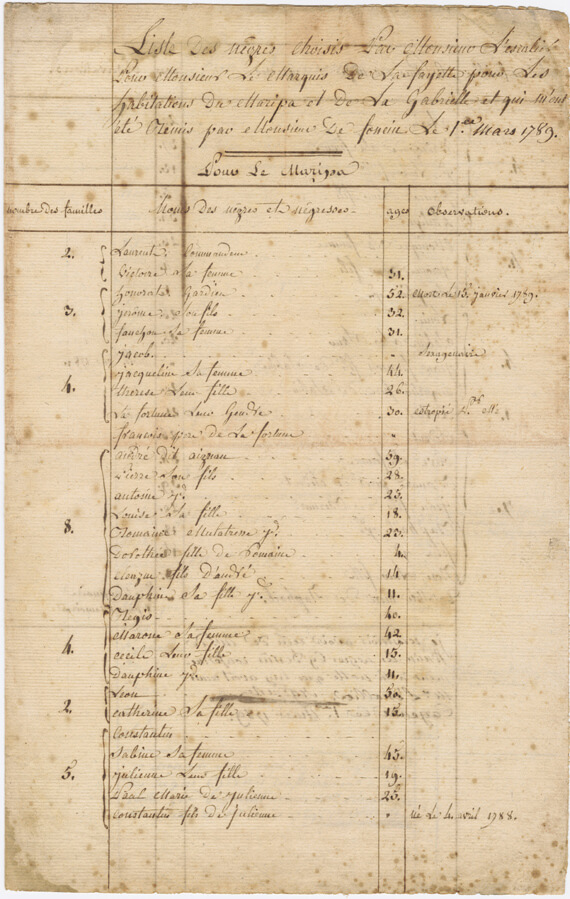 Liste Des nègres choisis Par Monsieur Lescalier
Pour Monsieur Le Marquis De La fayette pour Les
habitations du Maripa et de La Gabrielle et qui m'ont
été Remis par Monsieur De Le 1.er Mars 1789.
Pour Le Maripa
nombre des familles Noms des nègres et négresses ages Observations.
2. Laurent, Commandeur
Victoire sa femme 31.
honorat Gardien 52. Mort Le 15. janvier 1789.
3. jérôme son fils 32.
fanchon sa femme 31.
jacob Sexagenaire
jacqueline Sa femme 44.
4. therese Leur fille 26.
La fortune Leur Gendre 30. estropié
françois père de La fortune "
andré dit 59.
Pierre Son fils 28.
antoine yd. 25.
Louise Sa fille 18.
8. Romaine Mulatresse yd. 25.
Dorothée fille de Romaine 4.
fils D'andré 14.
Dauphine Sa fille yd. 11.
Regis 40.
Marone Sa femme 42.
4. cécile Leur fille 15.
dauphine yd. 11.
Leon 50.
2. catherine Sa fille 15.
Constantin
Sabine Sa femme 45.
5. julienne Leur fille 19.
Paul Marie de julienne 25.
Constantin fils de julienne " né Le 4 avril 1788.